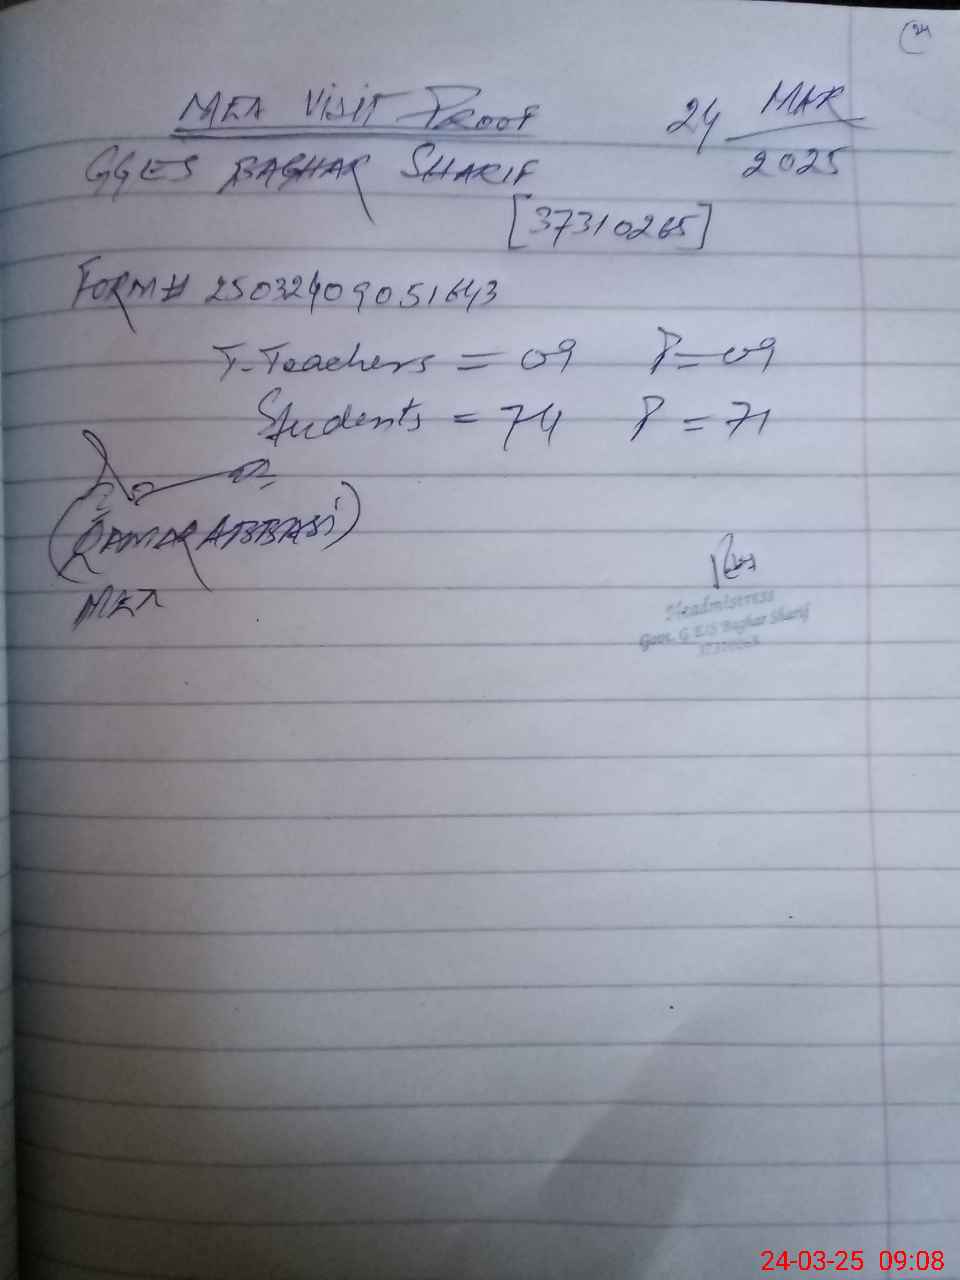 24
MEA Visit Proof
24 MAR
2025
GGES BAGHAR SHARIF
[37310265]
FORM# 25032409051643
T.Teachers = 09 P=09
Students = 74 P = 71
(QAMAR ABBASI)
MEA
Headmistress
Govt. G E/S Baghar Sharif
24-03-25 09:08